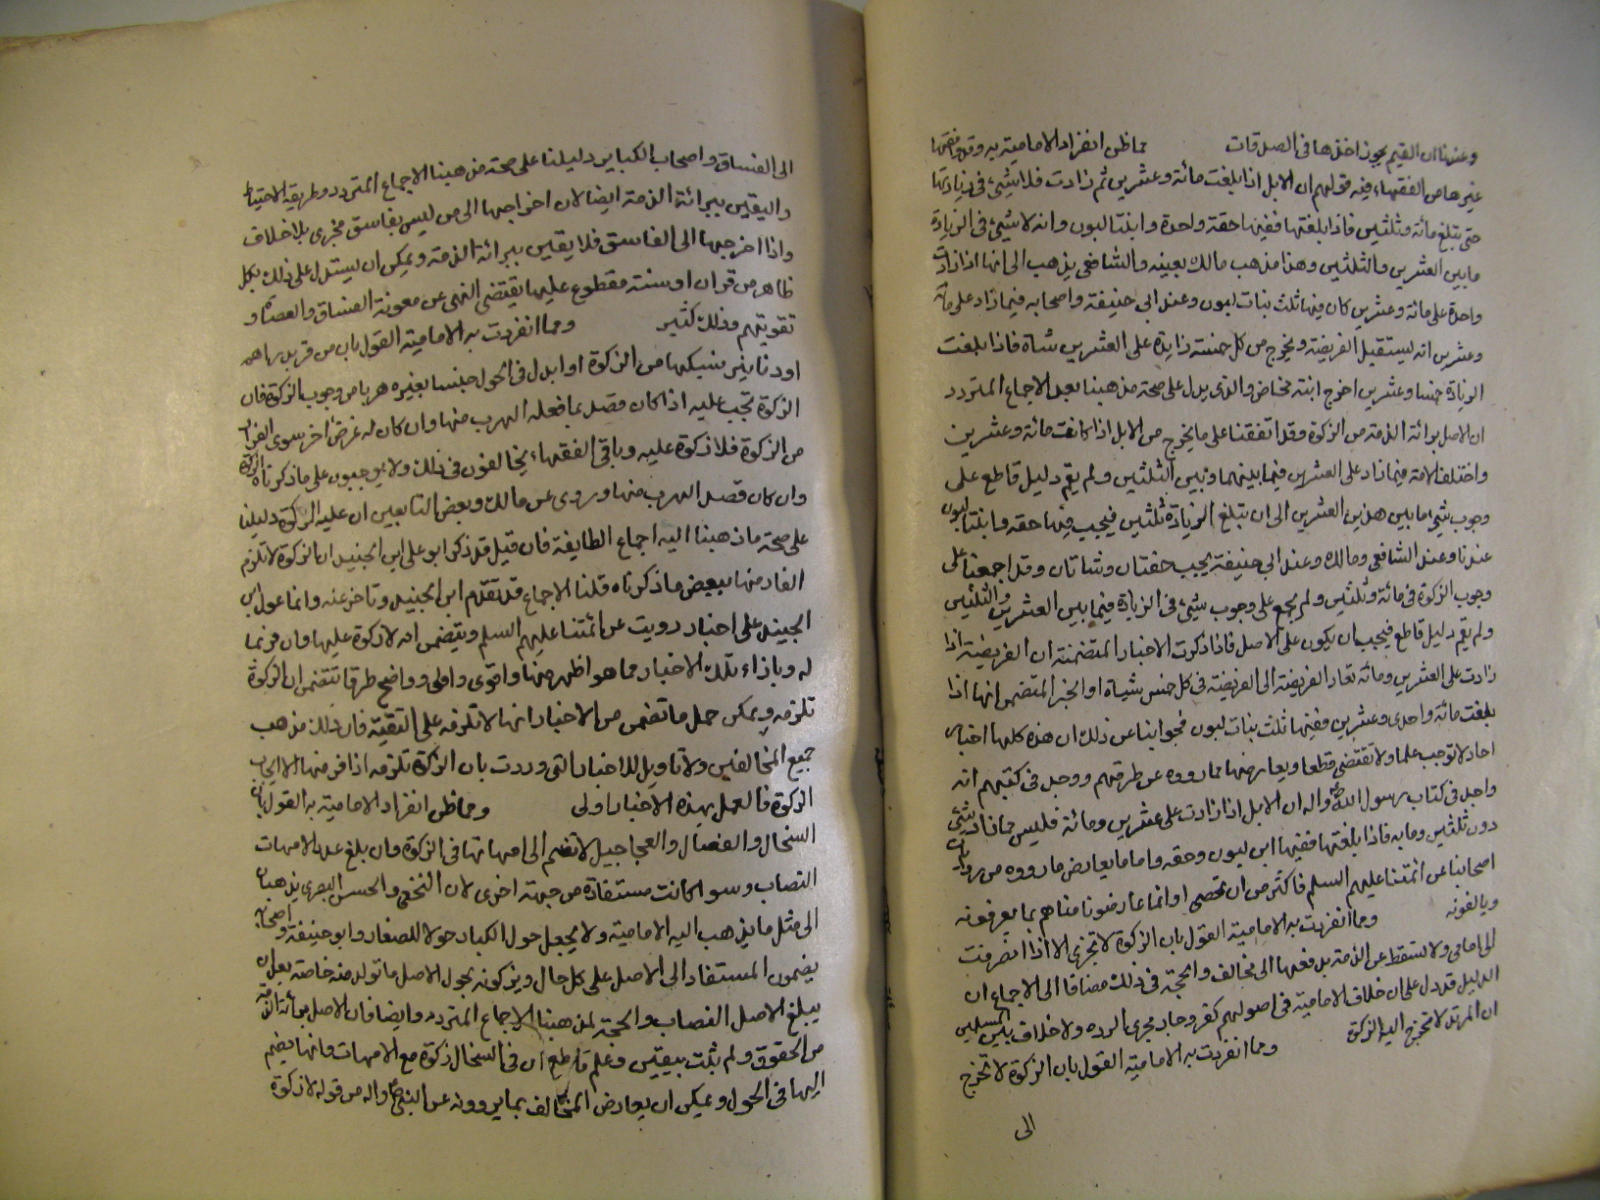 وعندنا ان القيم يجوز اخذها فى الصدقات مما ظن انفراد الامامية به وقد وافقها
غيرها من الفقهاء فيه قولهم ان الابل اذا بلغت مائة وعشرين ثم زادت فلا شيئ فى زيادتها
حتى تبلغ مائة وثلثين فاذا بلغتها ففيها حقة واحدة وابنتا لبون وانه لا شيئ فى الزيادة
ما بين العشرين والثلثين وهذا مذهب مالك بعينه والشافعى يذهب الى انها اذا زادت
واحدة على مائة وعشرين كان فيها ثلث بنات لبون وعند ابى حنيفة واصحابه فيما زاد على مائة
وعشرين انه يستقبل الفريضة ويخرج من كل خمسة زايدة على العشرين شاة فاذا بلغت
الزيادة خمسا وعشرين اخرج ابنة مخاض والذى يدل على صحة مذهبنا بعد الاجماع المتردد
ان الاصل برائة الذمة من الزكوة وقد اتفقنا على ما يخرج من الابل اذا كانت مائة وعشرين
واختلف الامة فيما زاد على العشرين فيما بينهما وبين الثلثين ولم يقم دليل قاطع على
وجوب شيئ ما بين هذين العشرين الى ان تبلغ الزيادة ثلثين فيجب فيها حقه وابنتا لبون
عندنا وعند الشافعى ومالك وعند ابى حنيفة يجب حقتان وشاتان وقد اجمعنا على
وجوب الزكوة فى مائة وثلثين ولم يجمع على وجوب شيئ فى الزيادة فيما بين العشرين والثلثين
ولم يقم دليل قاطع فيجب ان يكون على الاصل فاذا ذكرت الاخبار المتضمنة ان الفريضة اذا
زادت على العشرين ومائة تعاد الفريضة الى الفريضة فى كل خمس شياة او الخبر المتضمن انها اذا
بلغت مائة واحدى وعشرين ففيها ثلث بنات لبون فجوابنا عن ذلك ان هذه كلها اخبار
احاد لا توجب علما ولا تقتضى قطعا ويعارضها ما رووه عن طرقهم ووجد فى كتبهم انه
واجد فى كتاب رسول الله ص واله ان الابل اذا زادت على عشرين ومائة فليس فيما زاد شيئ
دون ثلثين وما به فاذا بلغتها ففيها ابن لبون وحقه واما ما يعارض ما رووه من روايات
اصحابنا عن ائمتنا عليهم السلم فاكثر من ان تحصى وانما عارضونا مناهم بما يعرفونه
ويالفونه ومما انفردت به الامامية القول بان الزكوة لا تجزى الا اذا انصرفت
الى امامى ولا تسقط عن الذمة بدفعها الى مخالف والحجة فى ذلك مضافا الى الاجماع ان
الدليل قد دل على ان خلاف الامامية فى اصولهم كفر وجار مجرى الرده ولا خلاف بين المسلمين
ان المرتد لا تخرج اليه الزكوة ومما انفردت به الامامية القول بان الزكوة لا تخرج
الى
الى الفساق واصحاب الكباير دليلنا على صحة مذهبنا الاجماع المتردد وطريقة الاحتياط
واليقين ببرائة الذمة ايضا لان اخراجها الى من ليس بفاسق مجزى بلا خلاف
واذا اخرجها الى الفاسق فلا يقين ببرائة الذمة ويمكن ان يستدل على ذلك بكل
ظاهر من قران او سنة مقطوع عليها يقتضى النهى عن معونة الفساق والعصاة و
تقويتهم وذلك كثير ومما انفردت به الامامية القول بان من فر بدراهم
او دنانير بسبكها من الزكوة او ابدل فى الحول جنسا بغيره هربا من وجوب الزكوة فان
الزكوة تجب عليه اذا كان قصد بما فعله الهرب منها وان كان له غرض اخر سوى الفرار
من الزكوة فلا زكوة عليه وباقى الفقهاء يخالفون فى ذلك ولا يوجبون على ما ذكرناه الزكوة
وان كان قصد الهرب منها وروى عن مالك وبعض التابعين ان عليه الزكوة دليلنا
على صحة ما ذهبنا اليه اجماع الطايفة فان قيل قد ذكر ابو على ابن الجنيد ان الزكوة لا تلزم
الفار منها ببعض ما ذكرناه قلنا الاجماع قد تقدم ابن الجنيد وتاخر عنه وانما عول ابن
الجنيد على اخبار رويت عن ائمتنا عليهم السلم ويتضمن انه لا زكوة عليها وان فر بما
له وبازاء تلك الاخبار مما هو اظهر منها واقوى واولى وواضح طرقا تتضمن ان الزكوة
تلزمه ويمكن حمل ما تضمن من الاخبار انها لا تلزمه على التقية فان ذلك مذهب
جميع المخالفين ولا تاويل للاخبار التى وردت بان الزكوة تلزمه اذا فر منها الا ايجاب
الزكوة فالعمل بهذه الاخبار اولى ومما ظن انفراد الامامية به القول بان
السخال والفصال والعجاجيل لا تضم الى امهاتها فى الزكوة وان بلغ عدد الامهات
النصاب وسوا كانت مستفادة من جهة اخرى لان النخعى والحسن البصرى يذهبان
الى مثل ما يذهب اليه الامامية ولا يجعل حول الكبار حولا للصغار وابو حنيفة واصحابه
يضمون المستفاد الى الاصل على كل حال ويزكونه بحول الاصل ما تولد منه خاصة بعد ان
يبلغ الاصل النصاب والحجة لمذهبنا الاجماع المتردد وايضا فان الاصل برائة الذمة
من الحقوق ولم يثبت بيقين وعلم قاطع ان فى السخال زكوة مع الامهات وانها يضم
اليها فى الحول ويمكن ان يعارض المخالف بما يروونه عن النبى ص واله من قوله لا زكوة